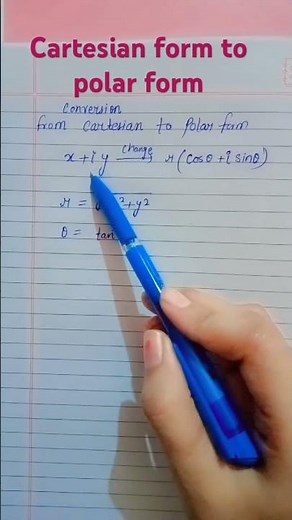 Cartesian form to
polar form
Conversion
from Cartesian to Polar form
x + iy change → r (cosθ + i sinθ)
r = ²+y²
θ = tan